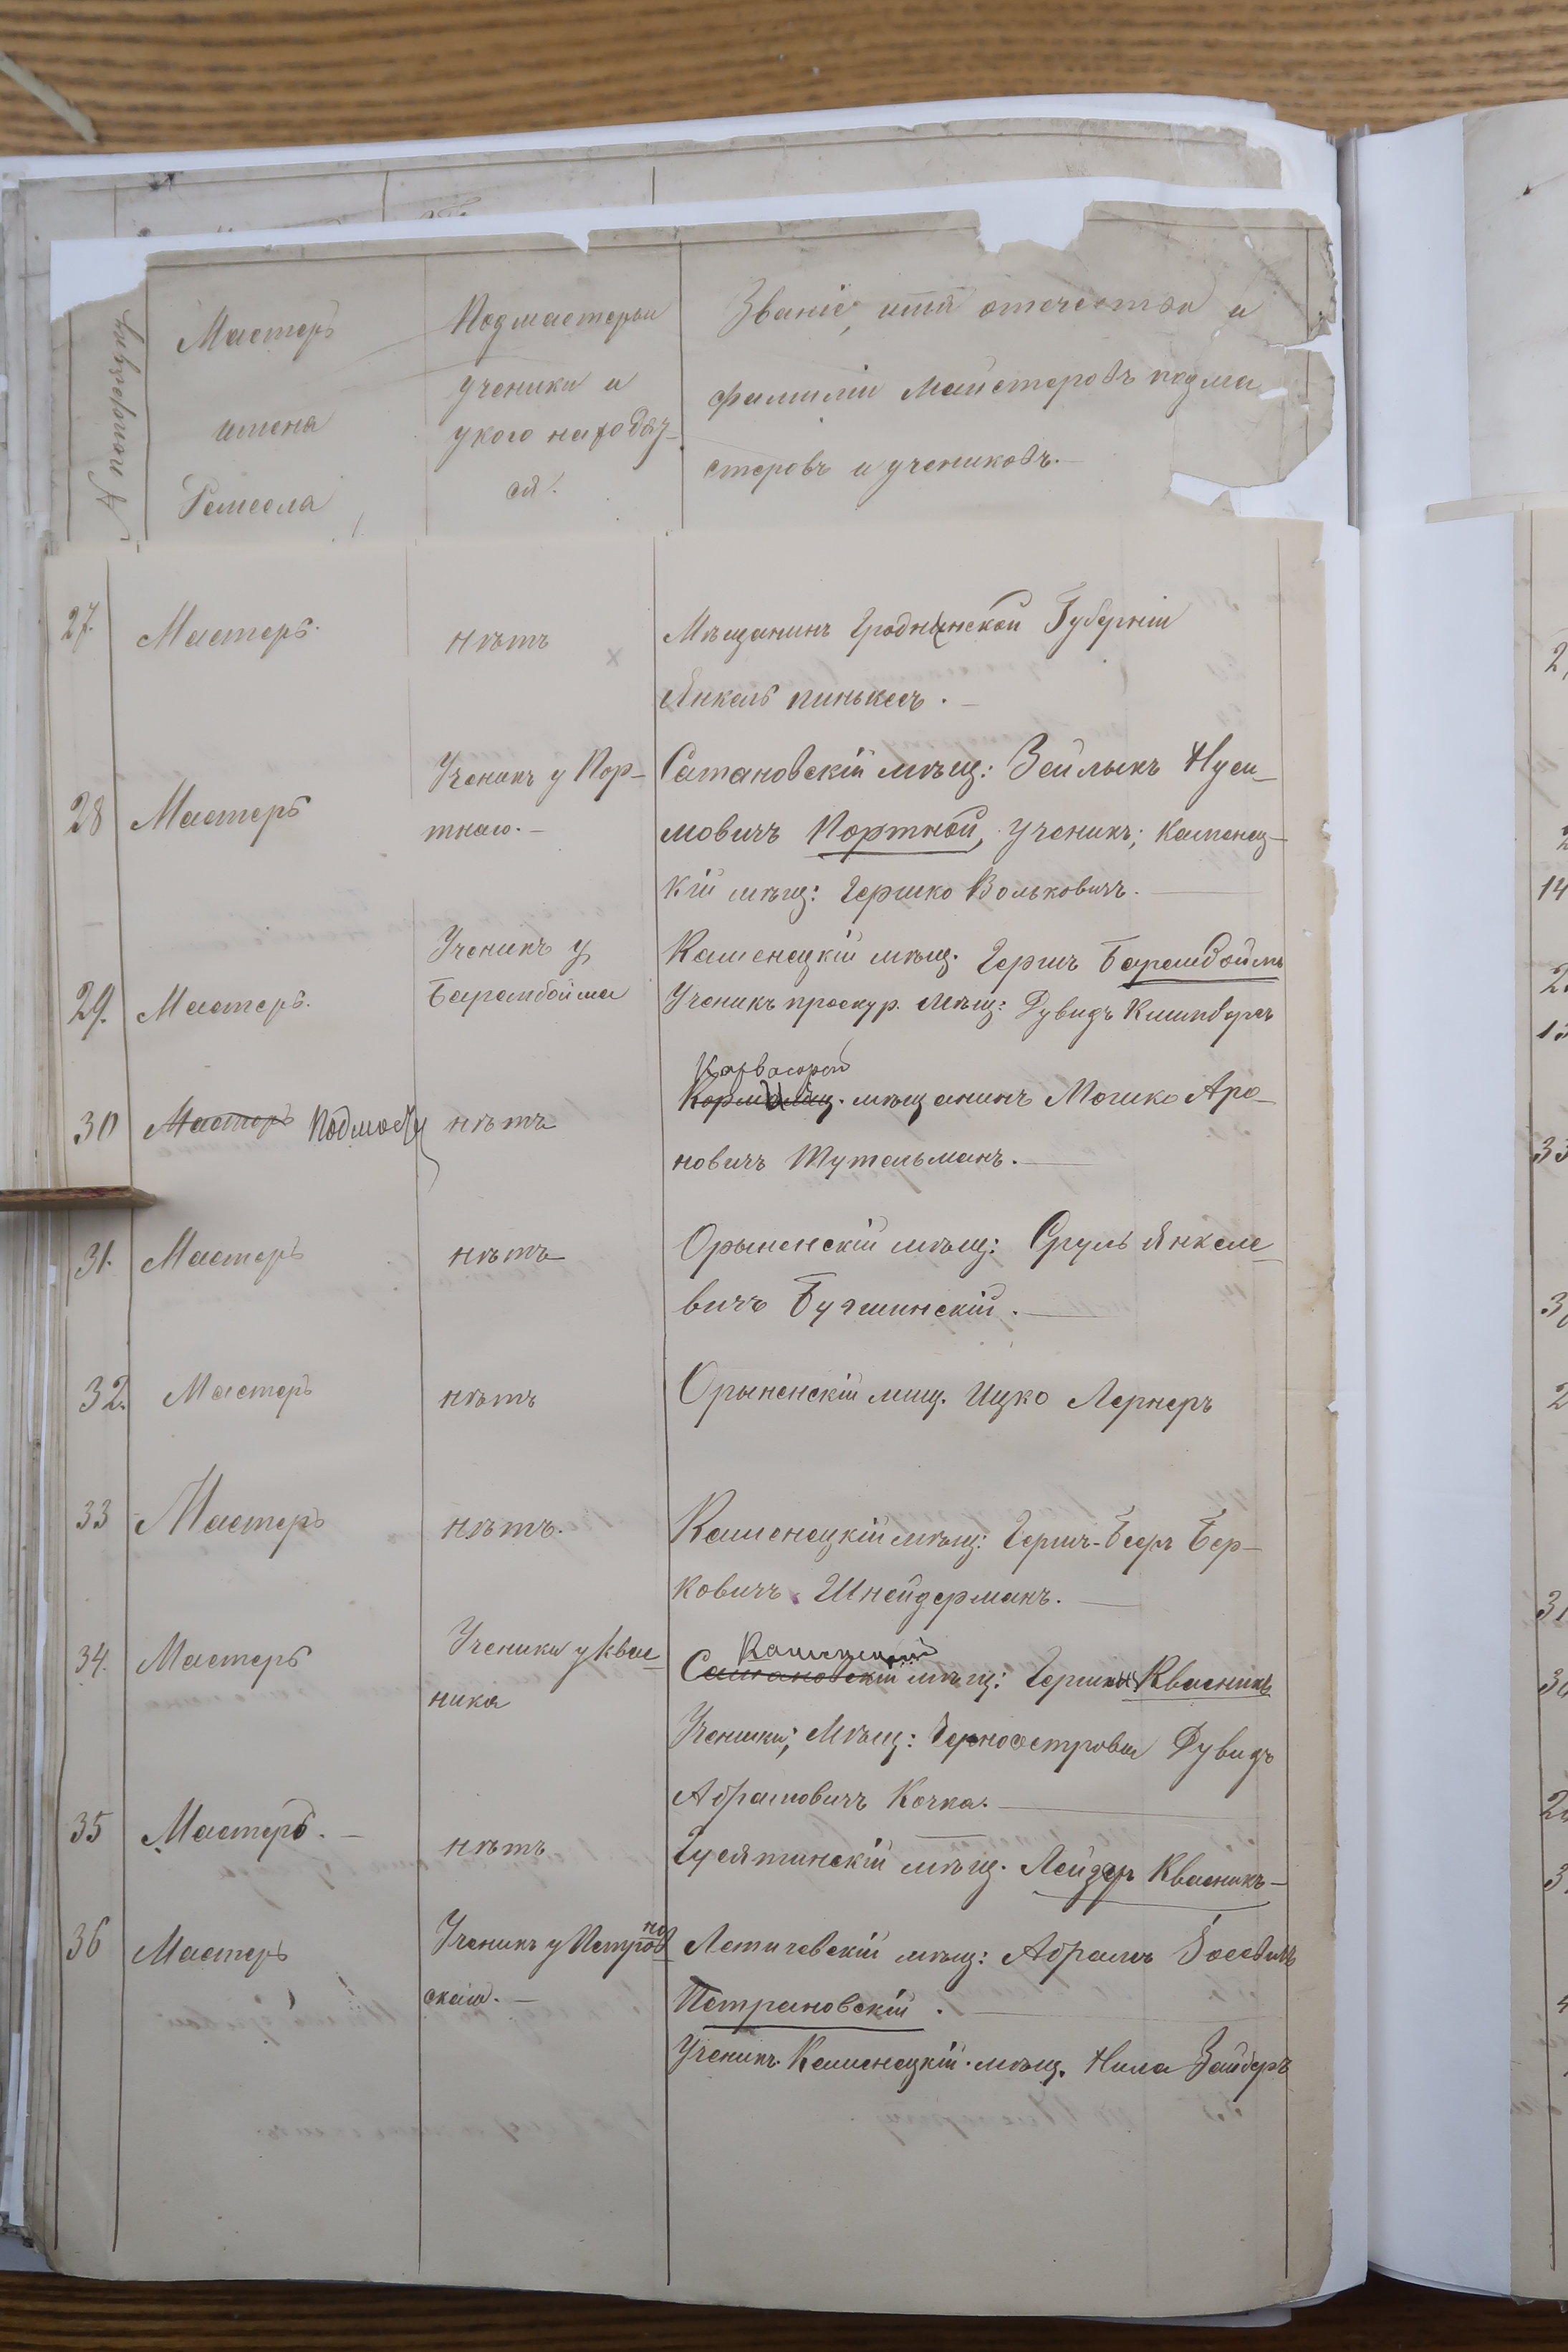 № по порядку
Мастеръ
имена
Ремесла
Подмастерьи
ученики и
у кого находят-
ся.
Званіе, имя отечество и
фамиліи Майстеровъ подма
стеровъ и учениковъ.—
27.
Мастеръ.
нѣтъ
Мѣщанинъ Гродненской Губерніи
Янкель пинькасъ.—
28
Мастеръ
Ученикъ у Пор-
тнаго.—
Сатановскій мѣщ: Зейлыкъ Нуси-
мовичъ Портной, Ученикъ; Каменец-
кій мѣщ: Гершко Вольковичъ.—
29.
Мастеръ.
Ученикъ у
Барамбойма
Каменецкій мѣщ. Гершъ Барамбоймъ
Ученикъ проскур. Мѣщ: Дувидъ
30
Мастеръ Подмаст
нѣтъ
мѣщанинъ Мошко Аро-
новичъ Тутельманъ.—
31.
Мастеръ
нѣтъ
Орыненскій мѣщ: Сруль Янкеле-
вичъ Бучшинскій.—
32.
Мастеръ
нѣтъ
Орыненскій мищ. Ицко Лернеръ
33
Мастеръ
нѣтъ.
Каменецкій мѣщ: Гершъ-Беръ Бер-
ковичъ Шнейдерманъ.—
34.
Мастеръ
Ученики у Квас-
ника
Каменецкій
Сатановскій мѣщ: Гершко Квасникъ
Ученики; Мѣщ: Черноострова Дувидъ
Абрамовичъ Кочка.—
35
Мастеръ.—
нѣтъ
Гусятинскій мѣщ. Лейзеръ Квасникъ—
36
Мастеръ
но
Ученикъ у Петров
скаго.—
Летичевскій мѣщ: Абрамъ
Петрановскій.—
Ученикъ Каменецкій мѣщ. Нила Зайдеръ